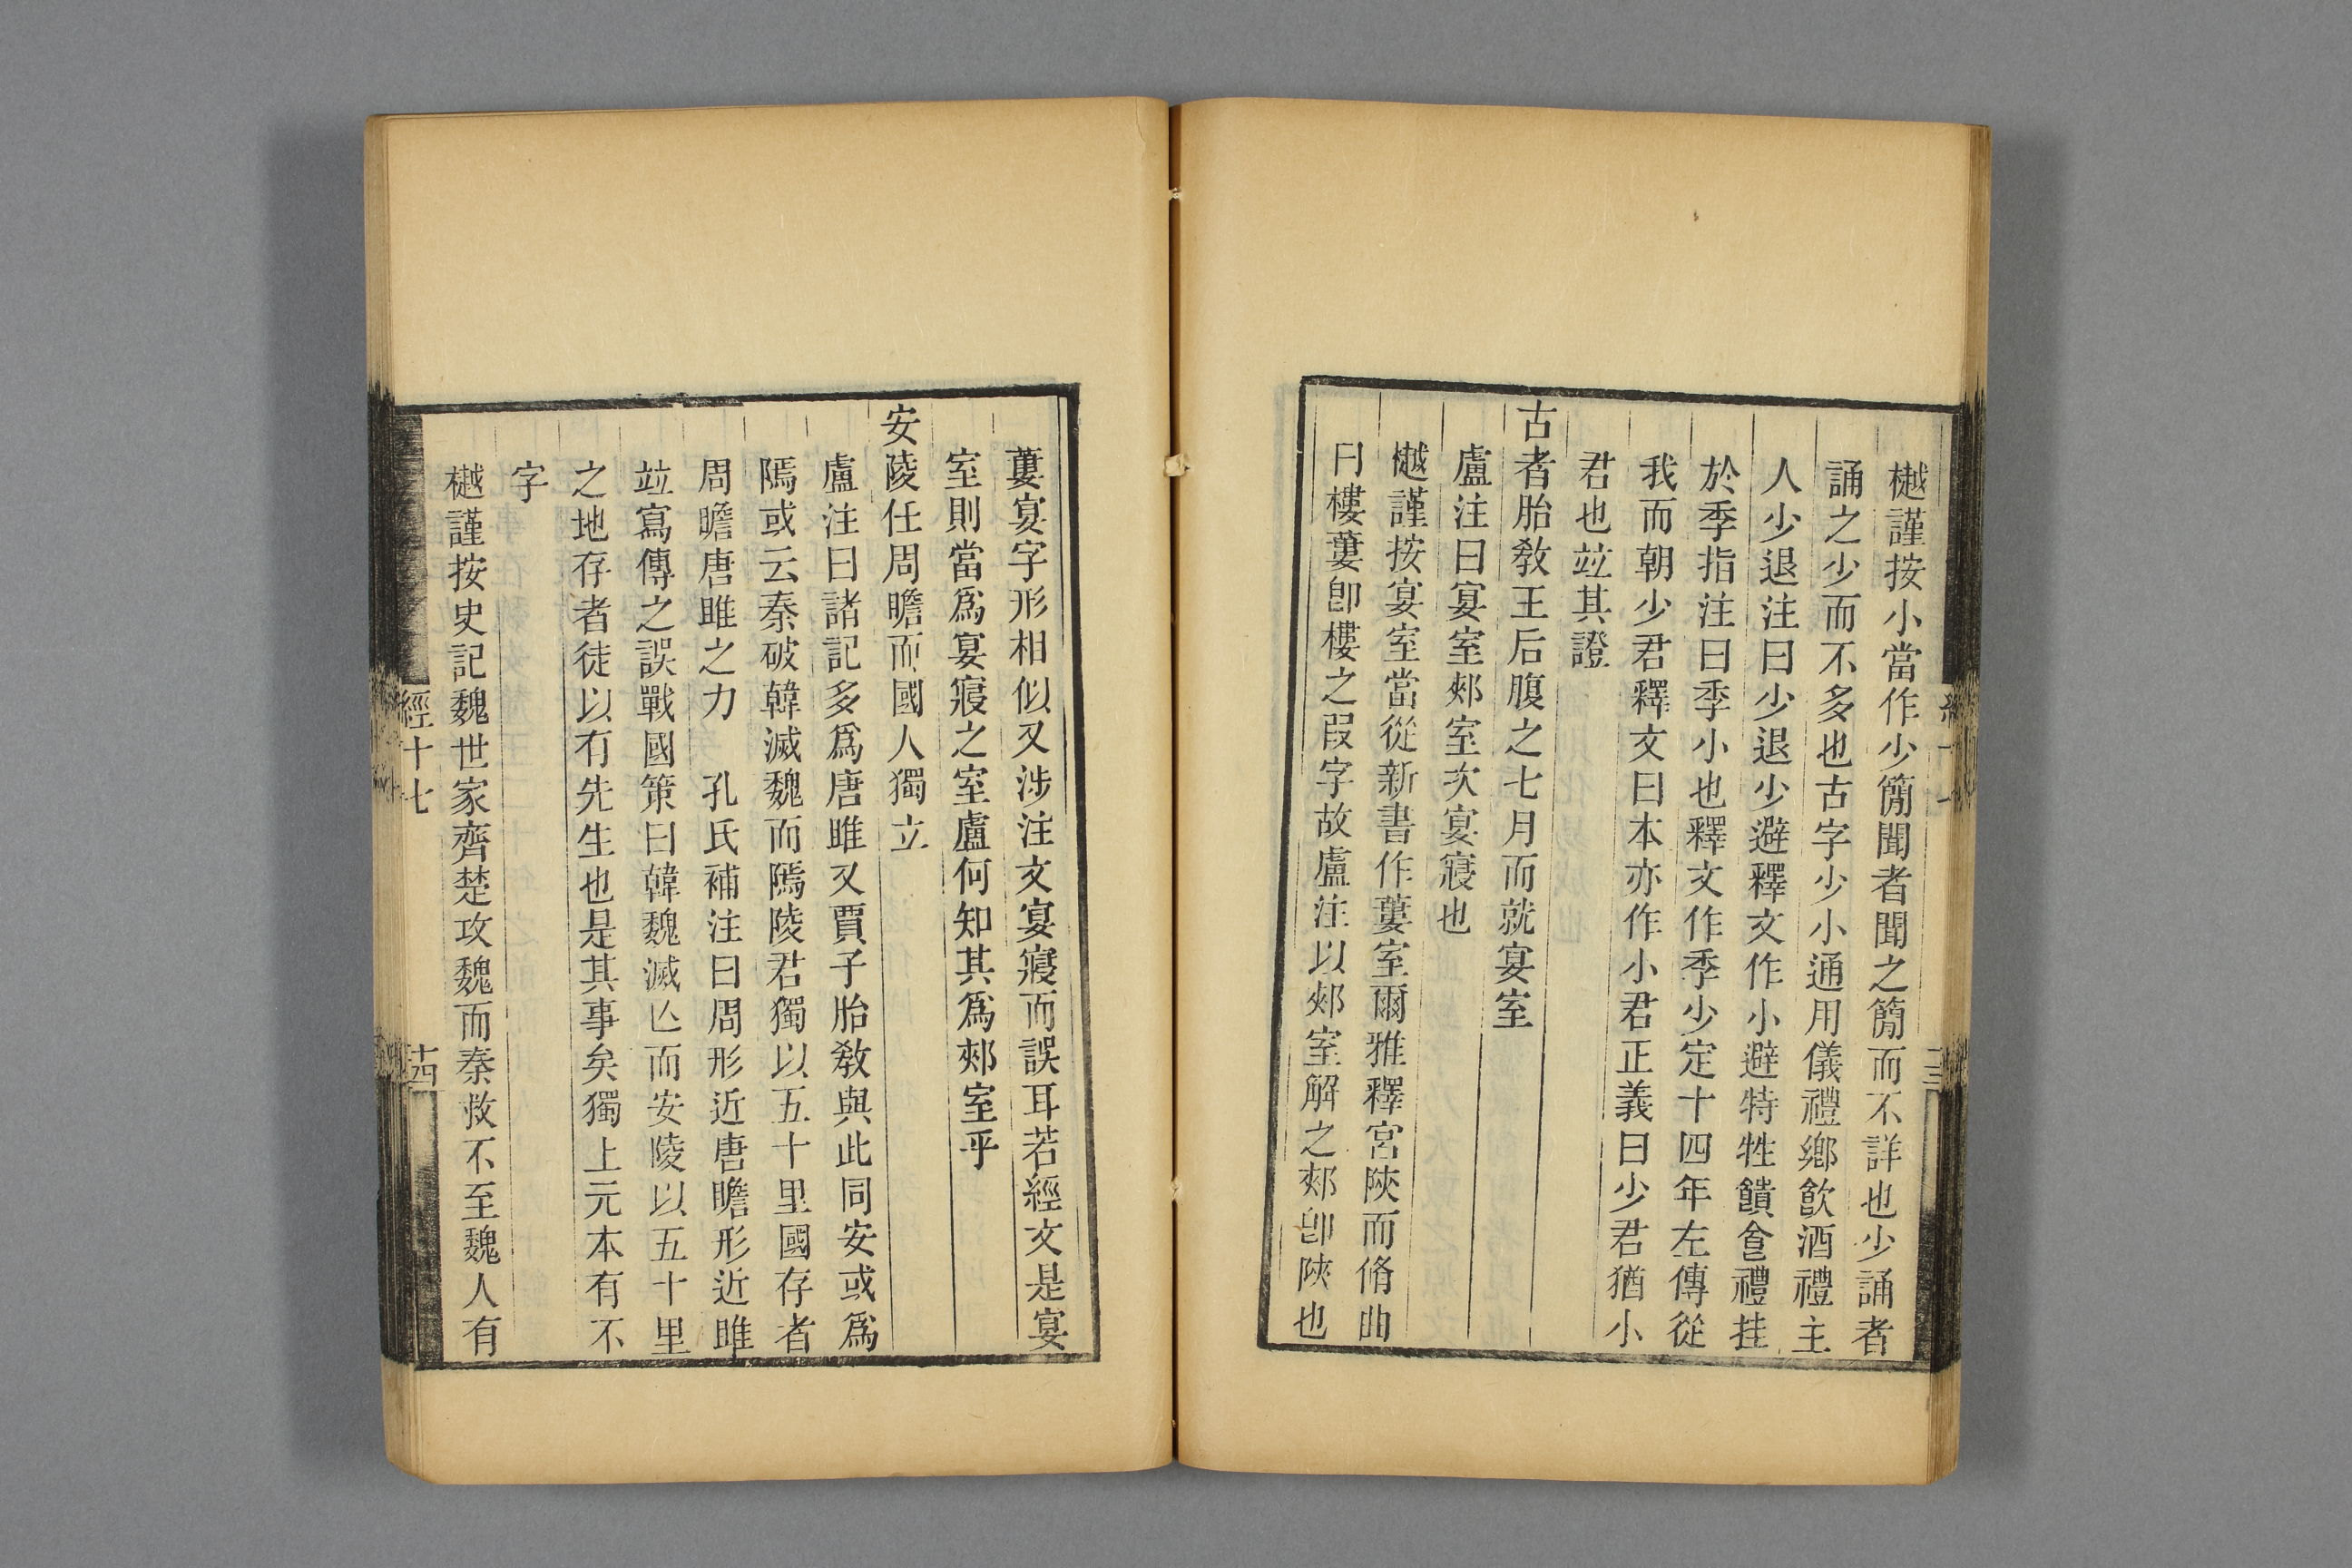 樾謹按小當作少簡聞者聞之簡而不詳也少誦者
誦之少而不多也古字少小通用儀禮鄉飮酒禮主
人少退注曰少退少避釋文作小避特牲饋食禮挂
於季指注曰季小也釋文作季少定十四年左傳從
我而朝少君釋文曰本亦作小君正義曰少君猶小
君也竝其證
古者胎敎王后腹之七月而就宴室
盧注曰宴室郟室次宴寑也
樾謹按宴室當從新書作蔞室爾雅釋宮陝而脩曲
曰樓蔞卽樓之叚字故盧注以郟室解之郟卽陝也
蔞宴字形相似又涉注文宴寢而誤耳若經文是宴
室則當爲宴寢之室盧何知其爲郟室乎
安陵任周瞻而國人獨立
盧注曰諸記多爲唐雎又賈子胎敎與此同安或爲
隝或云秦破韓滅魏而隝陵君獨以五十里國存者
周瞻唐雎之力　孔氏補注曰周形近唐瞻形近雎
竝寫傳之誤戰國策曰韓魏滅亾而安陵以五十里
之地存者徒以有先生也是其事矣獨上元本有不
字
樾謹按史記魏世家齊楚攻魏而秦救不至魏人有
經十七
十四